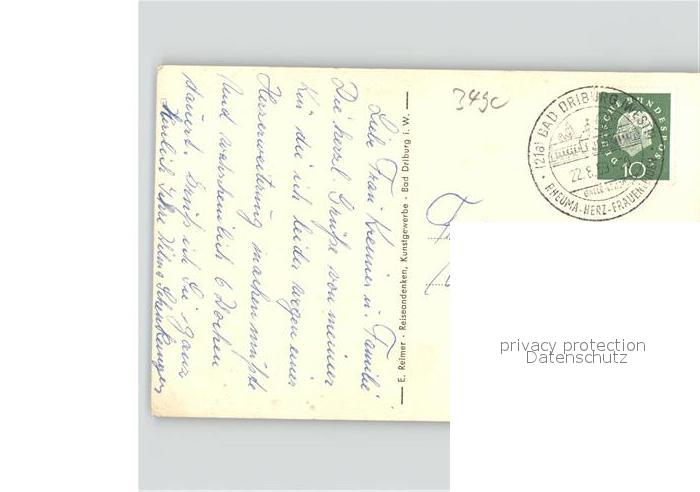 Liebe Frau Kremer u. Familie!
Die herzl. Grüße von meiner
Kur die ich leider wegen einer
Herzerweiterung machen muß
und wahrscheinlich 6 Wochen
dauert. Grüß ich Sie ganz
herzlich Ihre Wilma
E. Reimer · Reiseandenken, Kunstgewerbe · Bad Driburg i. W.
349c
(21a) BAD DRIBURG WESTF
22.8.
RHEUMA-HERZ-FRAUEN
DEUTSCHE BUNDESPOST
10
privacy protection
Datenschutz